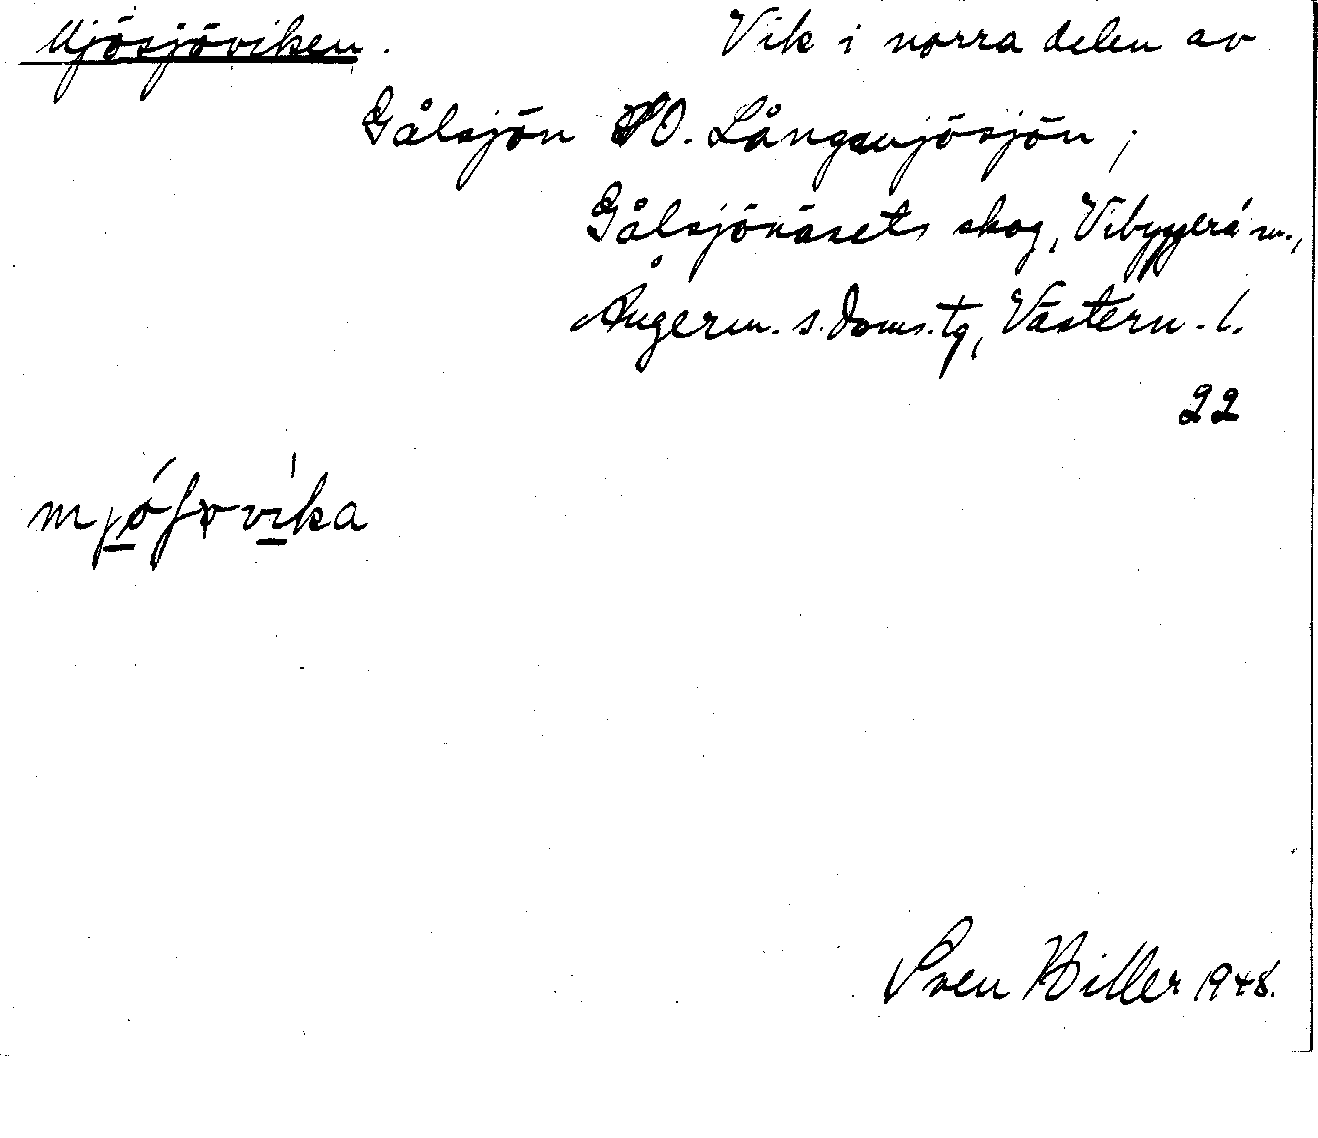 Mjösjöviken.
Vik i norra delen av
Gålsjön SO. Långsmjösjön,
Gålsjönäsets skog, Vibyggerå sn.,
Ångerm. s. doms. tg, Västern. l.
22
Sven Hiller 1948.